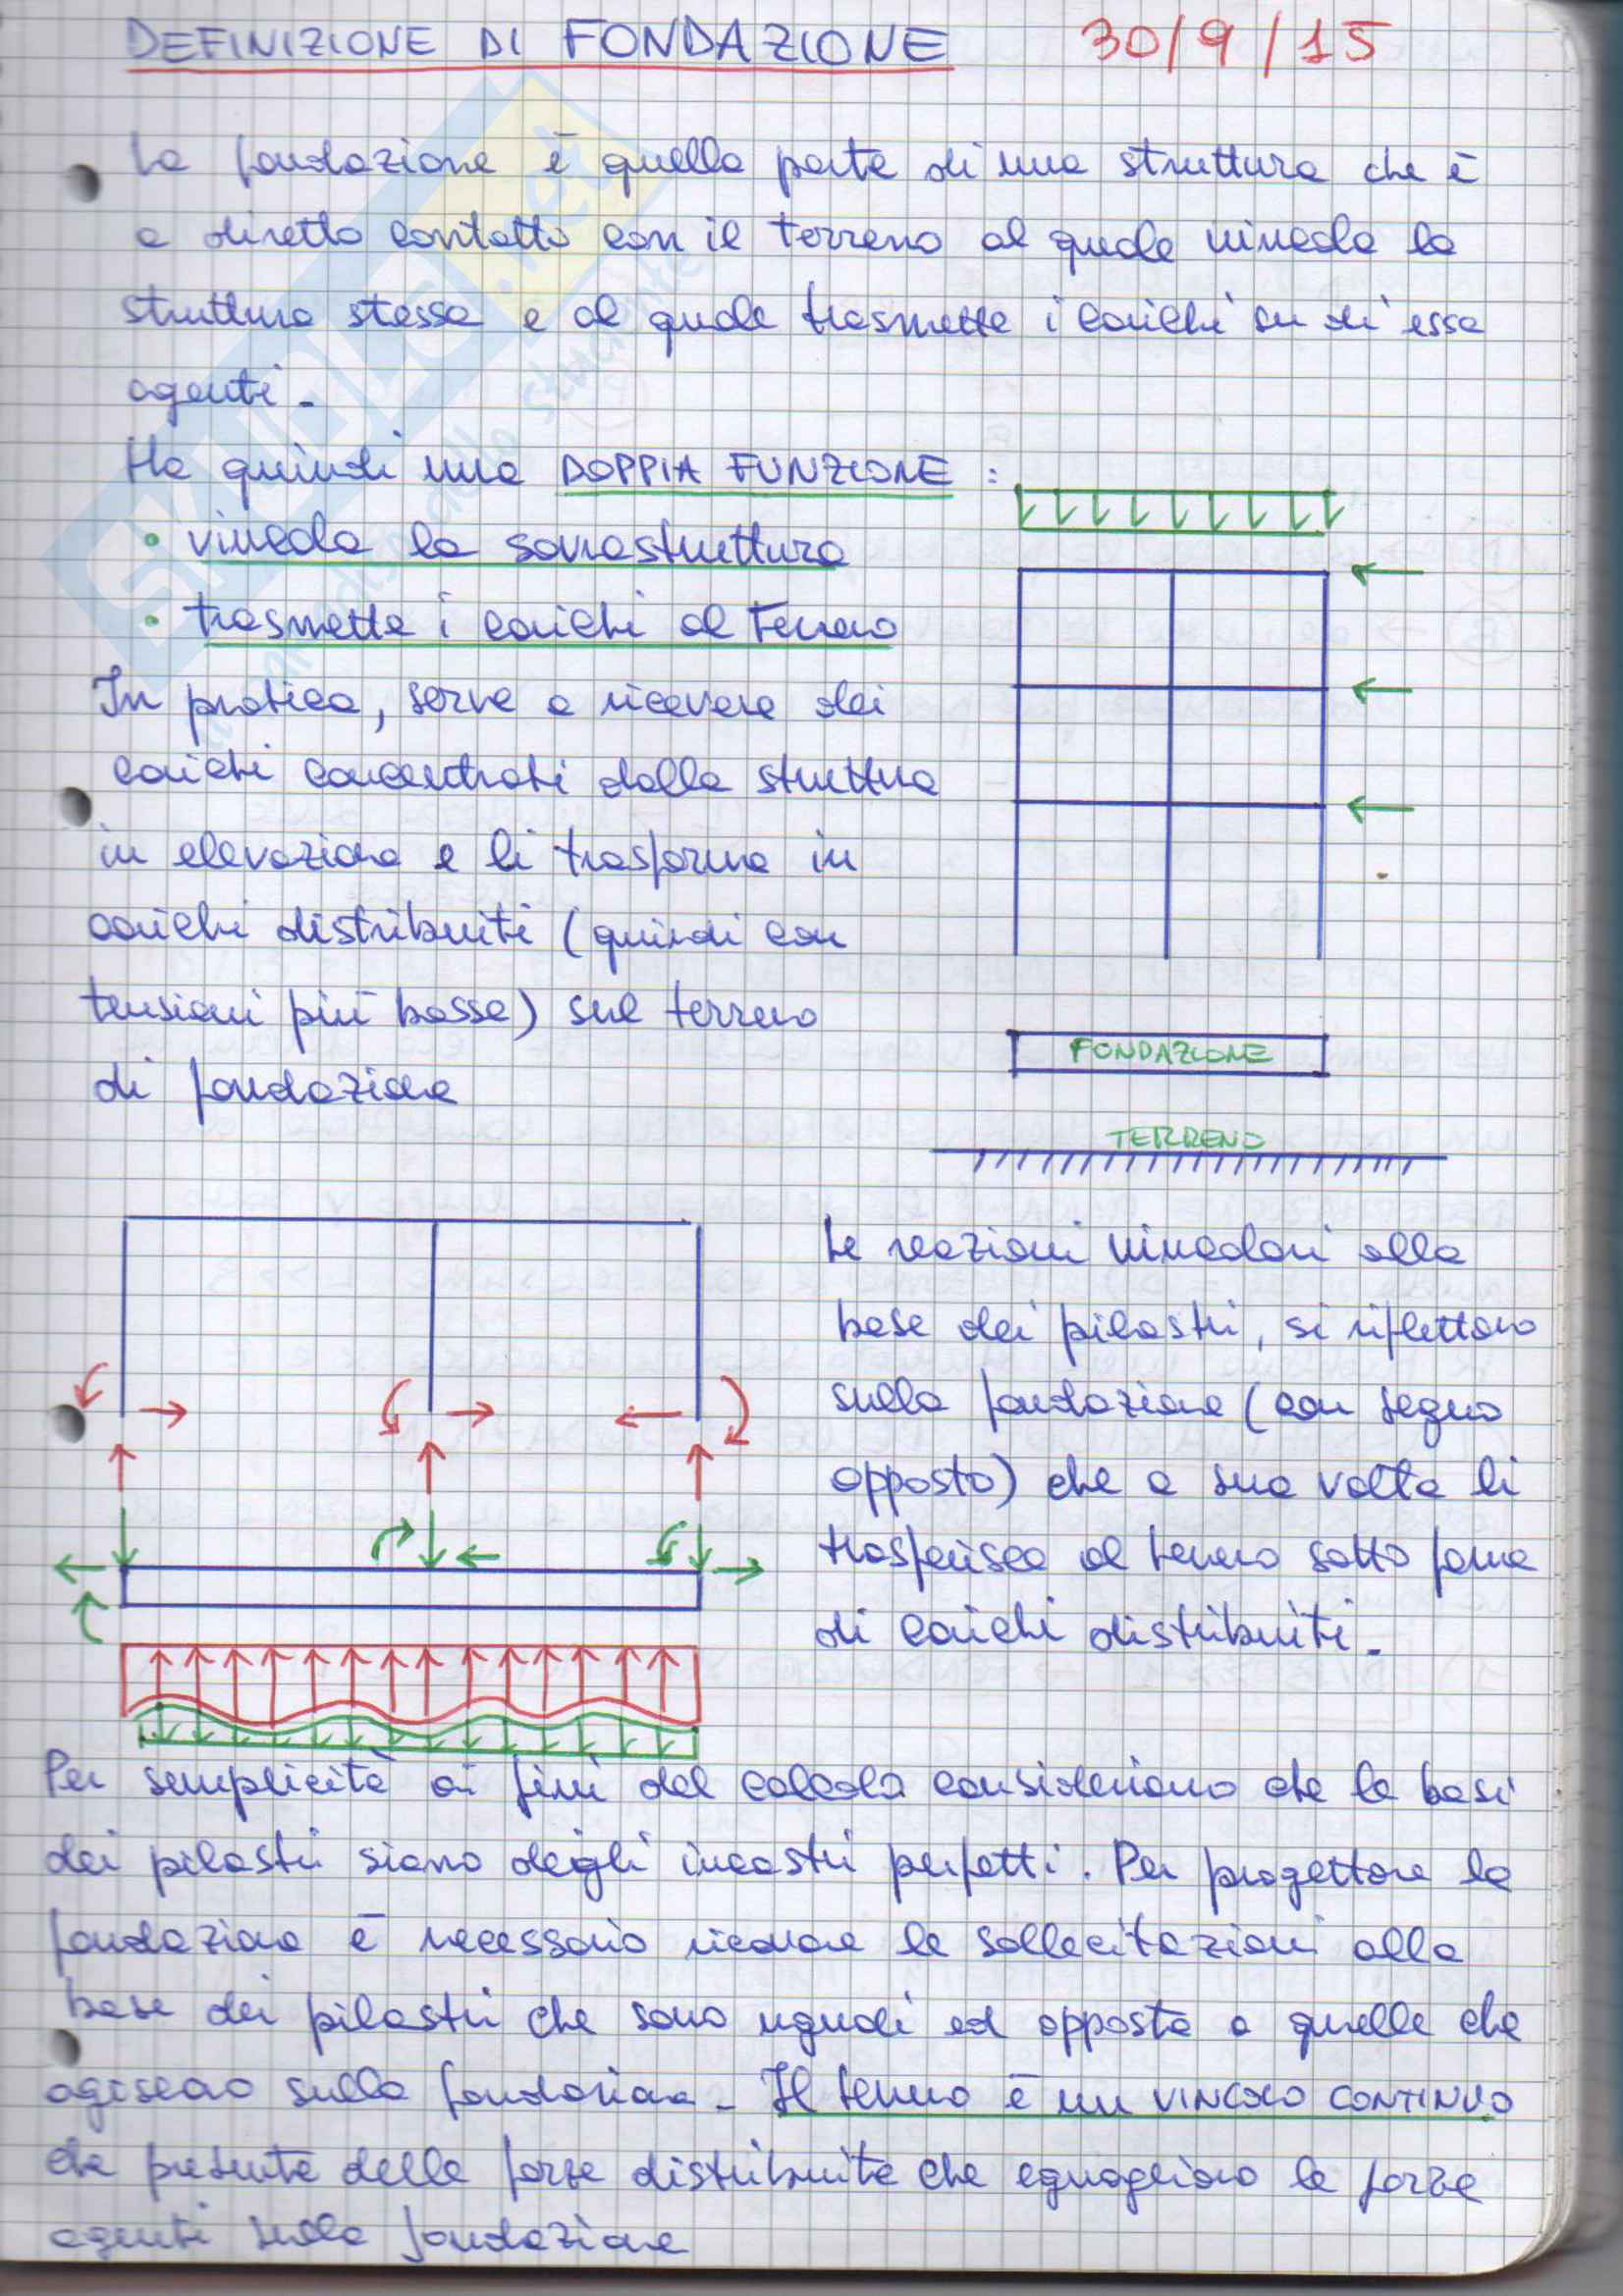 DEFINIZIONE DI FONDAZIONE 30/9/15
La fondazione è quella parte di una struttura che è
a diretto contatto con il terreno al quale vincola la
struttura stessa e al quale trasmette i carichi su di essa
agenti.
Ha quindi una DOPPIA FUNZIONE :
• vincola la sovrastruttura
• trasmette i carichi al terreno
In pratica, serve a ricevere dei
carichi concentrati dalla struttura
in elevazione e li trasforma in
carichi distribuiti (quindi con
tensioni più basse) sul terreno
di fondazione
FONDAZIONE
TERRENO
Le reazioni vincolari alla
base dei pilastri, si riflettono
sulla fondazione (con segno
opposto) che a sua volta li
trasferisce al terreno sotto forma
di carichi distribuiti.
Per semplicità ai fini del calcolo consideriamo che le basi
dei pilastri siano degli incastri perfetti. Per progettare la
fondazione è necessario ricavare le sollecitazioni alla
base dei pilastri che sono uguali ed opposte a quelle che
agiscono sulla fondazione. Il terreno è un VINCOLO CONTINUO
che presenta delle forze distribuite che eguagliano le forze
agenti sulla fondazione
SKUOLA.net